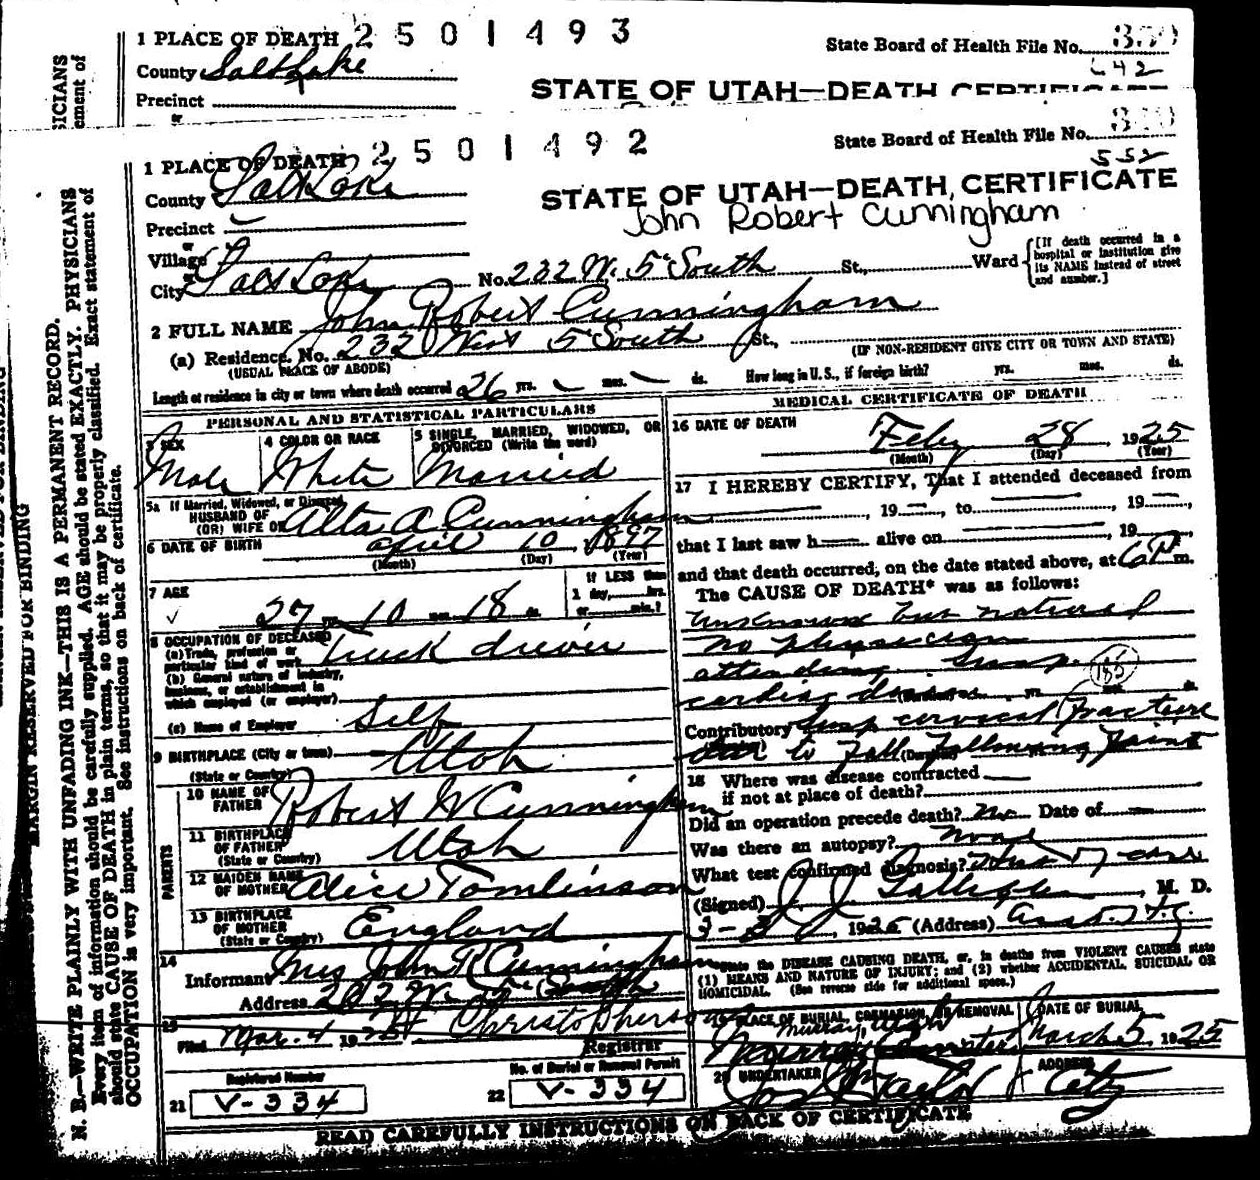 1 PLACE OF DEATH 2501493
State Board of Health File No.
County Salt Lake
642
Precinct
STATE OF UTAH—DEATH CERTIFICATE
or
SICIANS
ement of
1 PLACE OF DEATH 2501492
State Board of Health File No.
552
County Salt Lake
STATE OF UTAH—DEATH CERTIFICATE
John Robert Cunningham
Precinct
or
Village
or
City Salt Lake No. 232 W. 5 South St., Ward
[If death occurred in a hospital or institution give its NAME instead of street and number.]
2 FULL NAME John Robert Cunningham
(a) Residence. No. 232 West 5 South St.,
(USUAL PLACE OF ABODE)
(IF NON-RESIDENT GIVE CITY OR TOWN AND STATE)
Length of residence in city or town where death occurred 26 yrs. mos. ds. How long in U.S., if foreign birth? yrs. mos. ds.
PERSONAL AND STATISTICAL PARTICULARS
3 SEX Male
4 COLOR OR RACE White
5 SINGLE, MARRIED, WIDOWED, OR DIVORCED (Write the word) Married
5a If Married, Widowed, or Divorced
HUSBAND OF
(OR) WIFE OF Alta A Cunningham
6 DATE OF BIRTH April 10, 1897
(Month) (Day) (Year)
7 AGE 27 yrs. 10 mos. 18 ds.
If LESS than 1 day, hrs. or min.?
8 OCCUPATION OF DECEASED
(a) Trade, profession or particular kind of work Truck driver
(b) General nature of industry, business, or establishment in which employed (or employer)
(c) Name of Employer Self
9 BIRTHPLACE (City or town)
(State or Country) Utah
PARENTS
10 NAME OF FATHER Robert W Cunningham
11 BIRTHPLACE OF FATHER
(State or Country) Utah
12 MAIDEN NAME OF MOTHER Alice Tomlinson
13 BIRTHPLACE OF MOTHER
(State or Country) England
14
Informant Mrs John R Cunningham
Address 232 W. 5 South
15
Filed Mar. 4 1925 Christopherson
Registrar
Registered Number
21 V-334
No. of Burial or Removal Permit
22 V-334
MEDICAL CERTIFICATE OF DEATH
16 DATE OF DEATH Feby 28, 1925
(Month) (Day) (Year)
17 I HEREBY CERTIFY, That I attended deceased from
, 19 , to , 19
that I last saw h alive on , 19
and that death occurred, on the date stated above, at 6 P m.
The CAUSE OF DEATH* was as follows:
Unknown but natural
No Physician
attending. Susp. 185
cardiac disease (Duration) yrs. mos. ds.
Contributory Susp cervical fracture
due to fall following faint
18 Where was disease contracted
if not at place of death?
Did an operation precede death? No Date of
Was there an autopsy? None
What test confirmed diagnosis? Hist of case
(Signed) J. J. Galligan, M. D.
1925 (Address)
*State the DISEASE CAUSING DEATH, or, in deaths from VIOLENT CAUSES state (1) MEANS AND NATURE OF INJURY; and (2) whether ACCIDENTAL, SUICIDAL OR HOMICIDAL. (See reverse side for additional space.)
19 PLACE OF BURIAL, CREMATION, OR REMOVAL
Murray, Utah
Murray Cemetery
DATE OF BURIAL
March 5, 1925
20 UNDERTAKER Taylor
ADDRESS City
READ CAREFULLY INSTRUCTIONS ON BACK OF CERTIFICATE
MARGIN RESERVED FOR BINDING
N. B.—WRITE PLAINLY WITH UNFADING INK—THIS IS A PERMANENT RECORD.
Every item of information should be carefully supplied. AGE should be stated EXACTLY. PHYSICIANS
should state CAUSE OF DEATH in plain terms, so that it may be properly classified. Exact statement of
OCCUPATION is very important. See instructions on back of certificate.